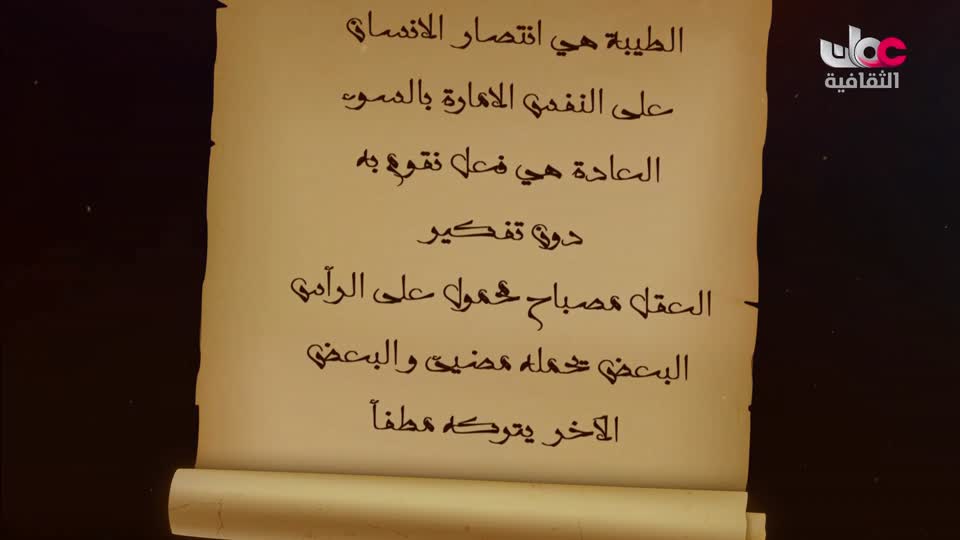 الطيبة هي انتصار الانسان
على النفس الامارة بالسوء
العادة هي فعل نقوم به
دون تفكير
العقل مصباح محمول على الرأس
البعض يحمله مضيئ والبعض
الاخر يتركه مطفأ
عمان
الثقافية